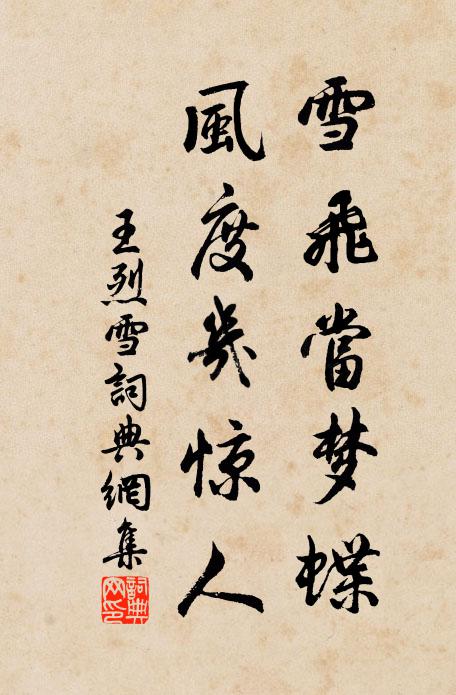 雪飛當梦蝶
風度幾惊人
王烈雪詞典網集
詞典網印